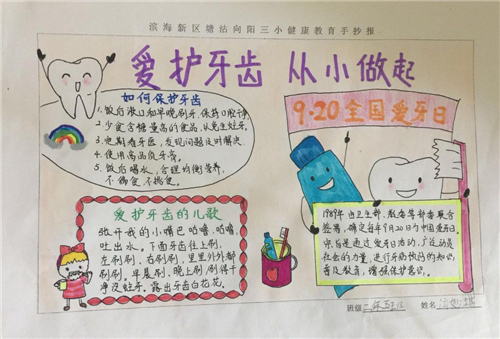 滨海新区塘沽向阳三小健康教育手抄报
爱护牙齿 从小做起
如何保护牙齿
1、饭后漱口和早晚刷牙,保持口腔干净
2、少食含糖量高的食品,以免生蛀牙。
3、定期看牙医,发现问题及时解决
4、使用高品质牙膏。
5、饭后喝水,合理均衡营养,
不偏食 不挑食。
9·20全国爱牙日
爱护牙齿的儿歌
张开我的小嘴巴咕噜,咕噜,
吐出水。下面牙齿往上刷,
左刷刷,右刷刷,里里外外都
刷刷,早晨刷,晚上刷,刷得干
净没蛀牙。露出牙齿白花花。
1989年,由卫生部、教委等部委联合
签署,确定每年9月20日为中国爱牙日。
宗旨是通过爱牙日活动,广泛动员
社会的力量,进行牙病防治的知识
普及教育,增强保护意识。
班级
姓名